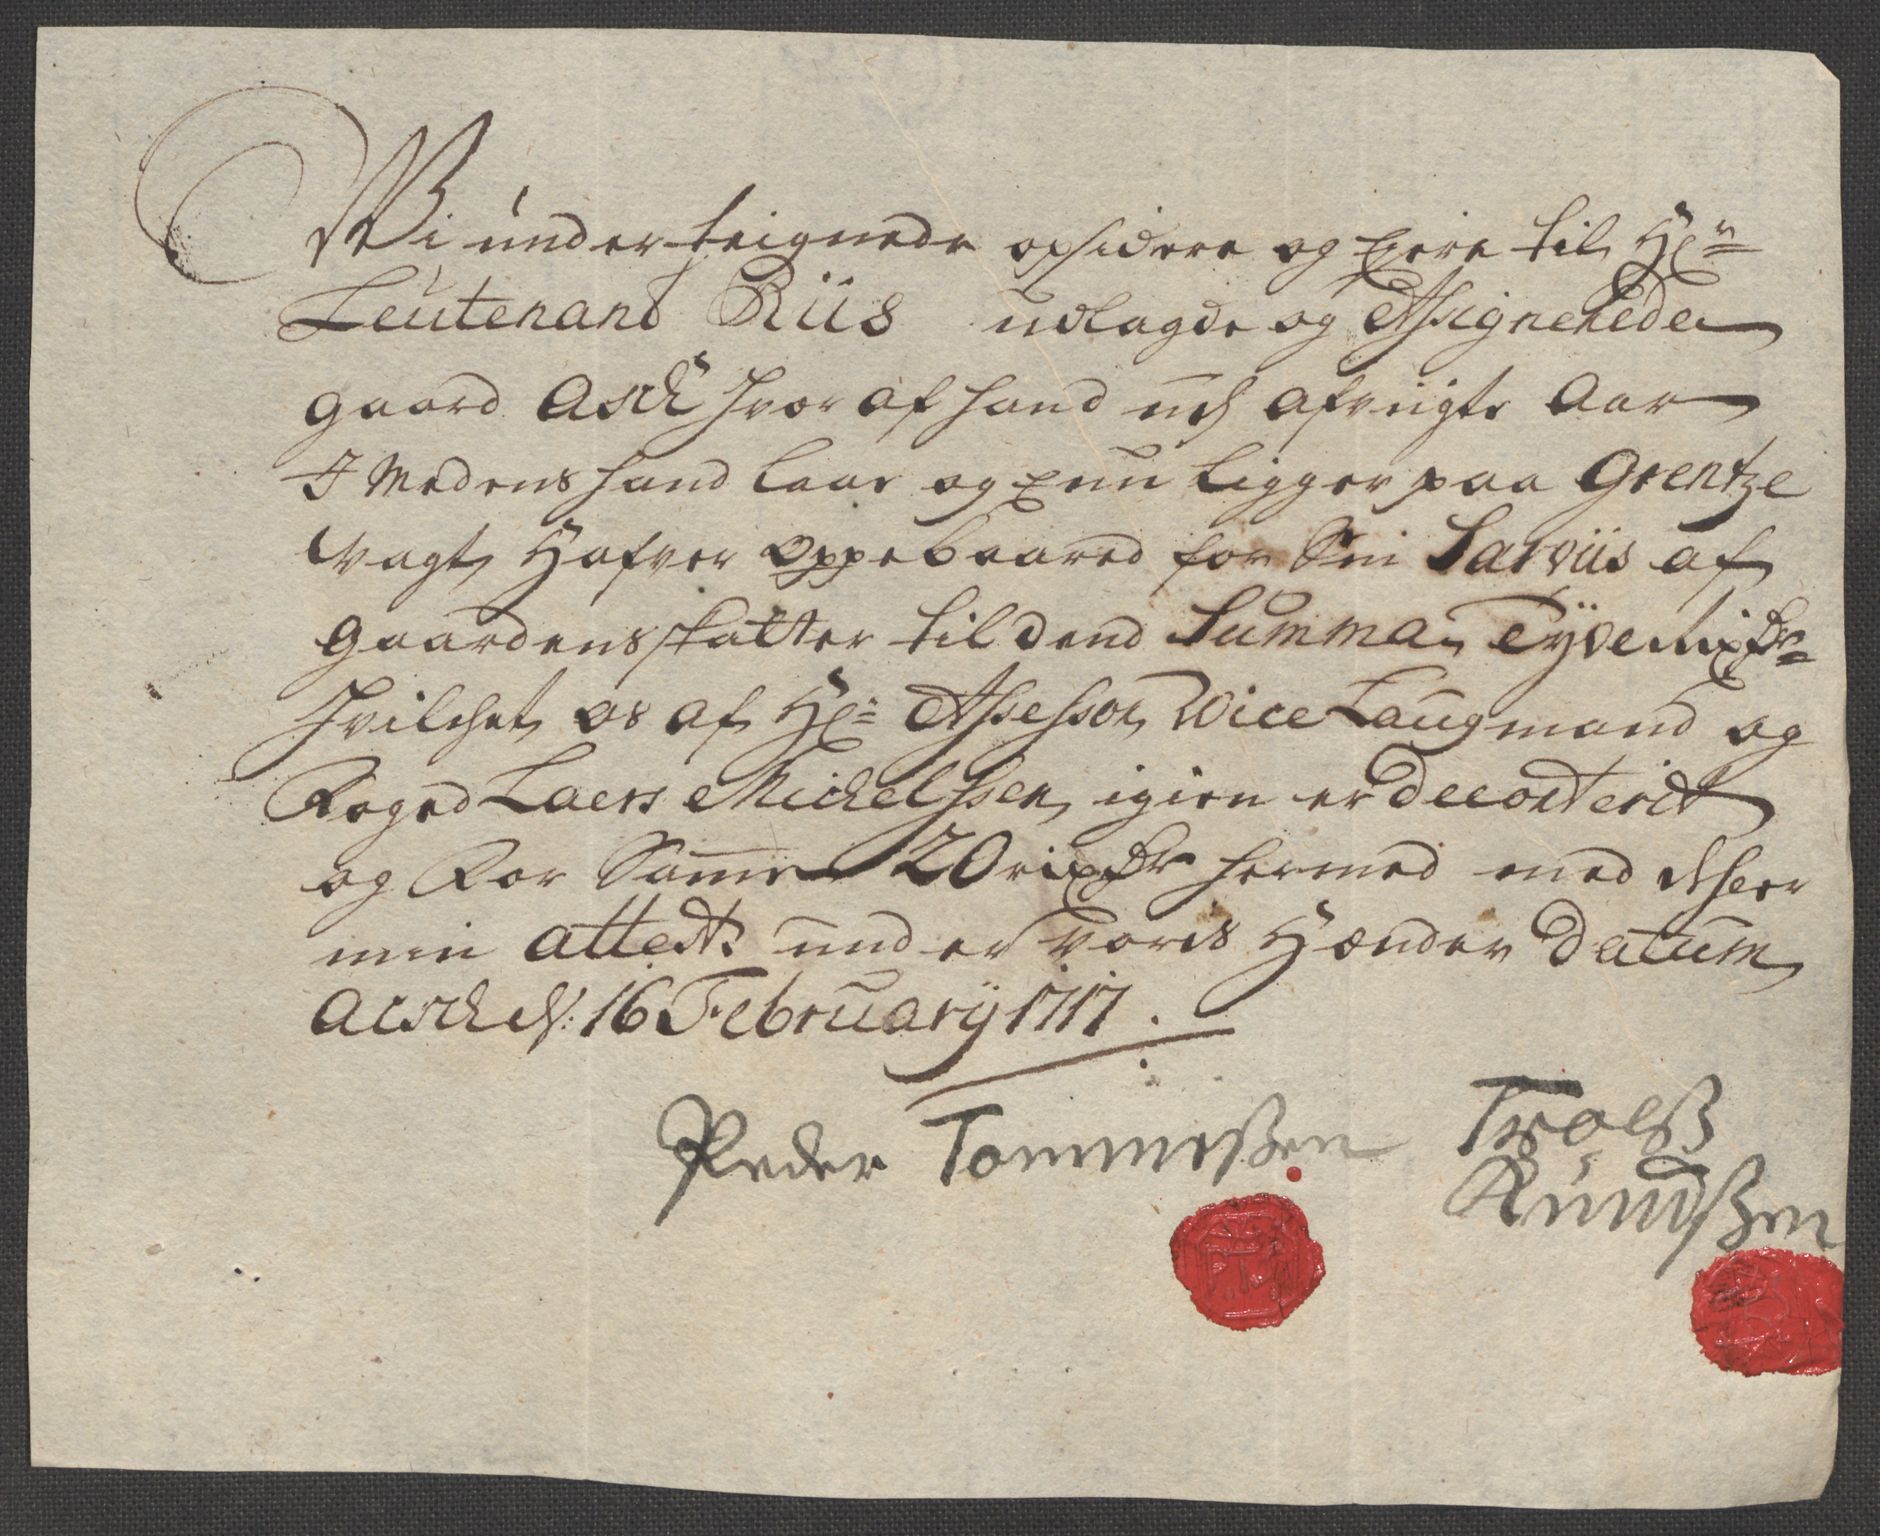 Wi underteignede opsidere og Eiere til Hr:
Leutenand Riis udlagde og Assignerede
gaard Asch hvor af hand udj afvigte Aar
I Medens hand laae og Enu ligger paa Grentze
Vagt, Hafver oppebaared for Sin Sarviis af
gaardens skatter til dend Summa, Tyve rixdr
hvilchet os af Hr: Assessor, Vice Laugmand og
Foged Laers Michelssen, igien er Decorterit
og For Samme 20 rixdr hermed med
min attest under voris Hænder Datum
Aasch d: 16 February 1717.
Peder Tommeßen Trolß
Knudßen